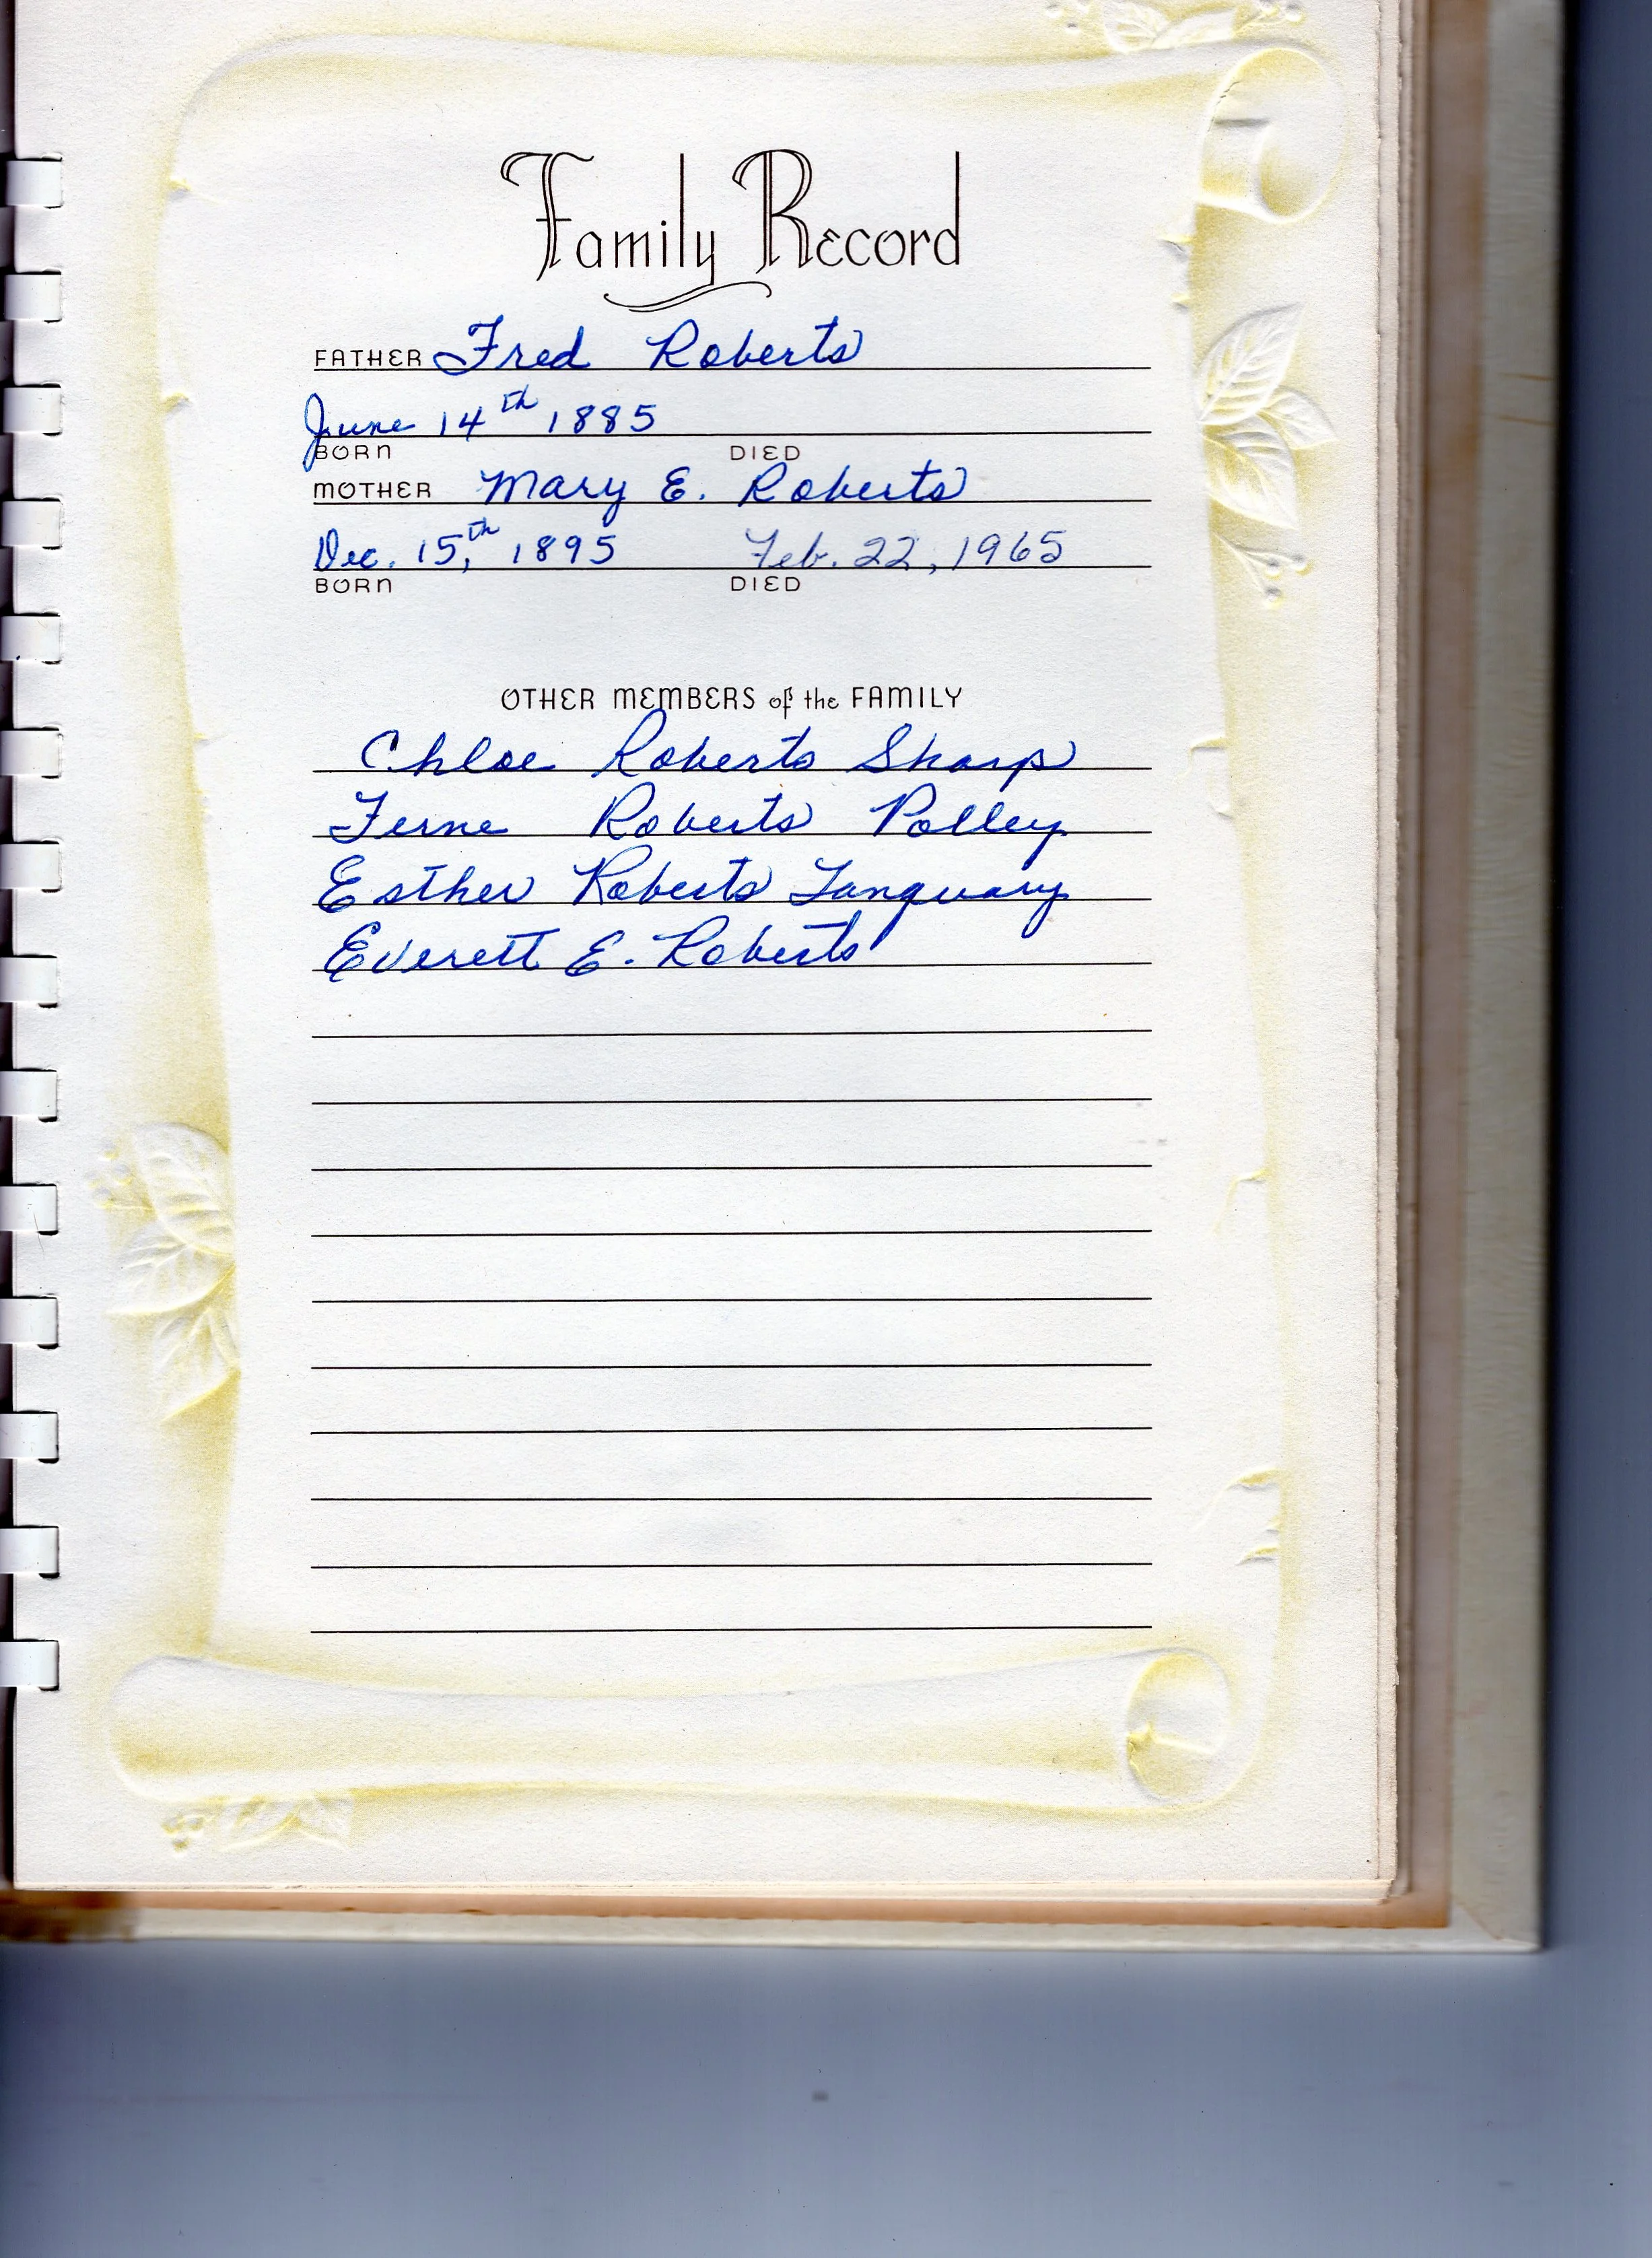 Family Record
FATHER Fred Roberts
June 14th 1885
BORN DIED
MOTHER Mary E. Roberts
Dec. 15th, 1895 Feb. 22, 1965
BORN DIED
OTHER MEMBERS of the FAMILY
Chloe Roberts Sharp
Ferne Roberts Polley
Esther Roberts Tanquary
Everett E. Roberts